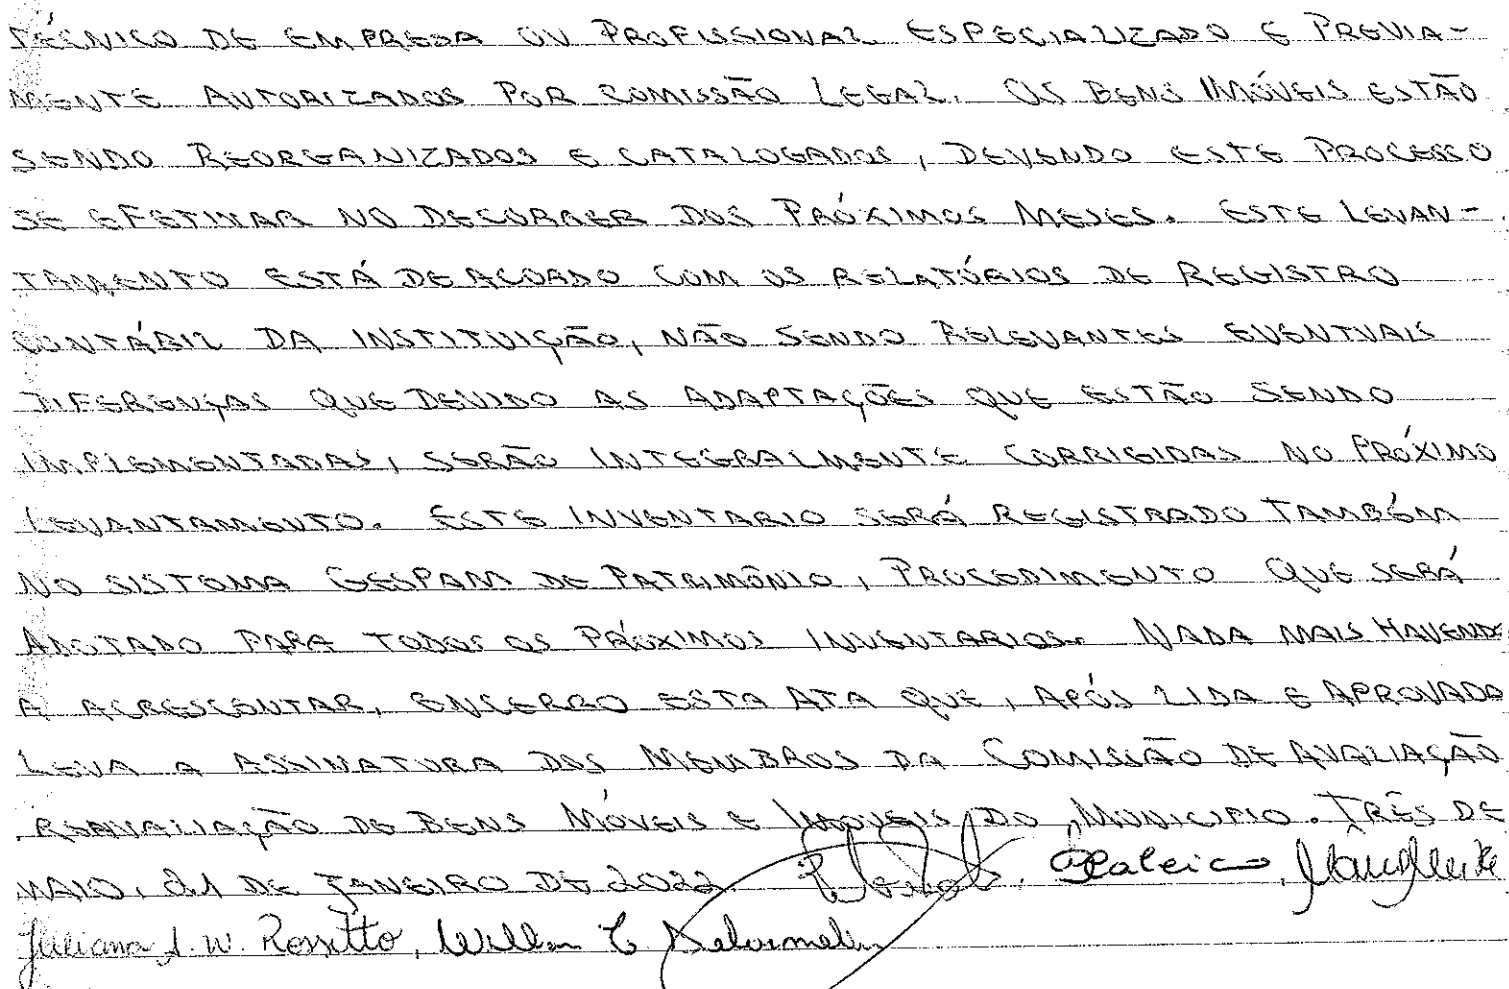 TÉCNICO DE EMPRESA OU PROFISSIONAL ESPECIALIZADO E PREVIA-
MENTE AUTORIZADOS POR COMISSÃO LEGAL. OS BENS IMÓVEIS ESTÃO
SENDO REORGANIZADOS E CATALOGADOS, DEVENDO ESTE PROCESSO
SE EFETIVAR NO DECORRER DOS PRÓXIMOS MESES. ESTE LEVAN-
TAMENTO ESTÁ DE ACORDO COM OS RELATÓRIOS DE REGISTRO
CONTÁBIL DA INSTITUIÇÃO, NÃO SENDO RELEVANTES EVENTUAIS
DIFERENÇAS QUE DEVIDO AS ADAPTAÇÕES QUE ESTÃO SENDO
IMPLEMENTADAS, SERÃO INTEGRALMENTE CORRIGIDAS NO PRÓXIMO
LEVANTAMENTO. ESTE INVENTARIO SERÁ REGISTRADO TAMBÉM
NO SISTEMA GESPAM DE PATRIMÔNIO, PROCEDIMENTO QUE SERÁ
ADOTADO PARA TODOS OS PRÓXIMOS INVENTARIOS. NADA MAIS HAVENDO
A ACRESCENTAR, ENCERRO ESTA ATA QUE, APÓS LIDA E APROVADA
LEVA A ASSINATURA DOS MEMBROS DA COMISSÃO DE AVALIAÇÃO
REAVALIAÇÃO DE BENS MÓVEIS E IMÓVEIS DO MUNICIPIO. TRÊS DE
MAIO, 21 DE JANEIRO DE 2022
Juliana A. W. Rossetto,